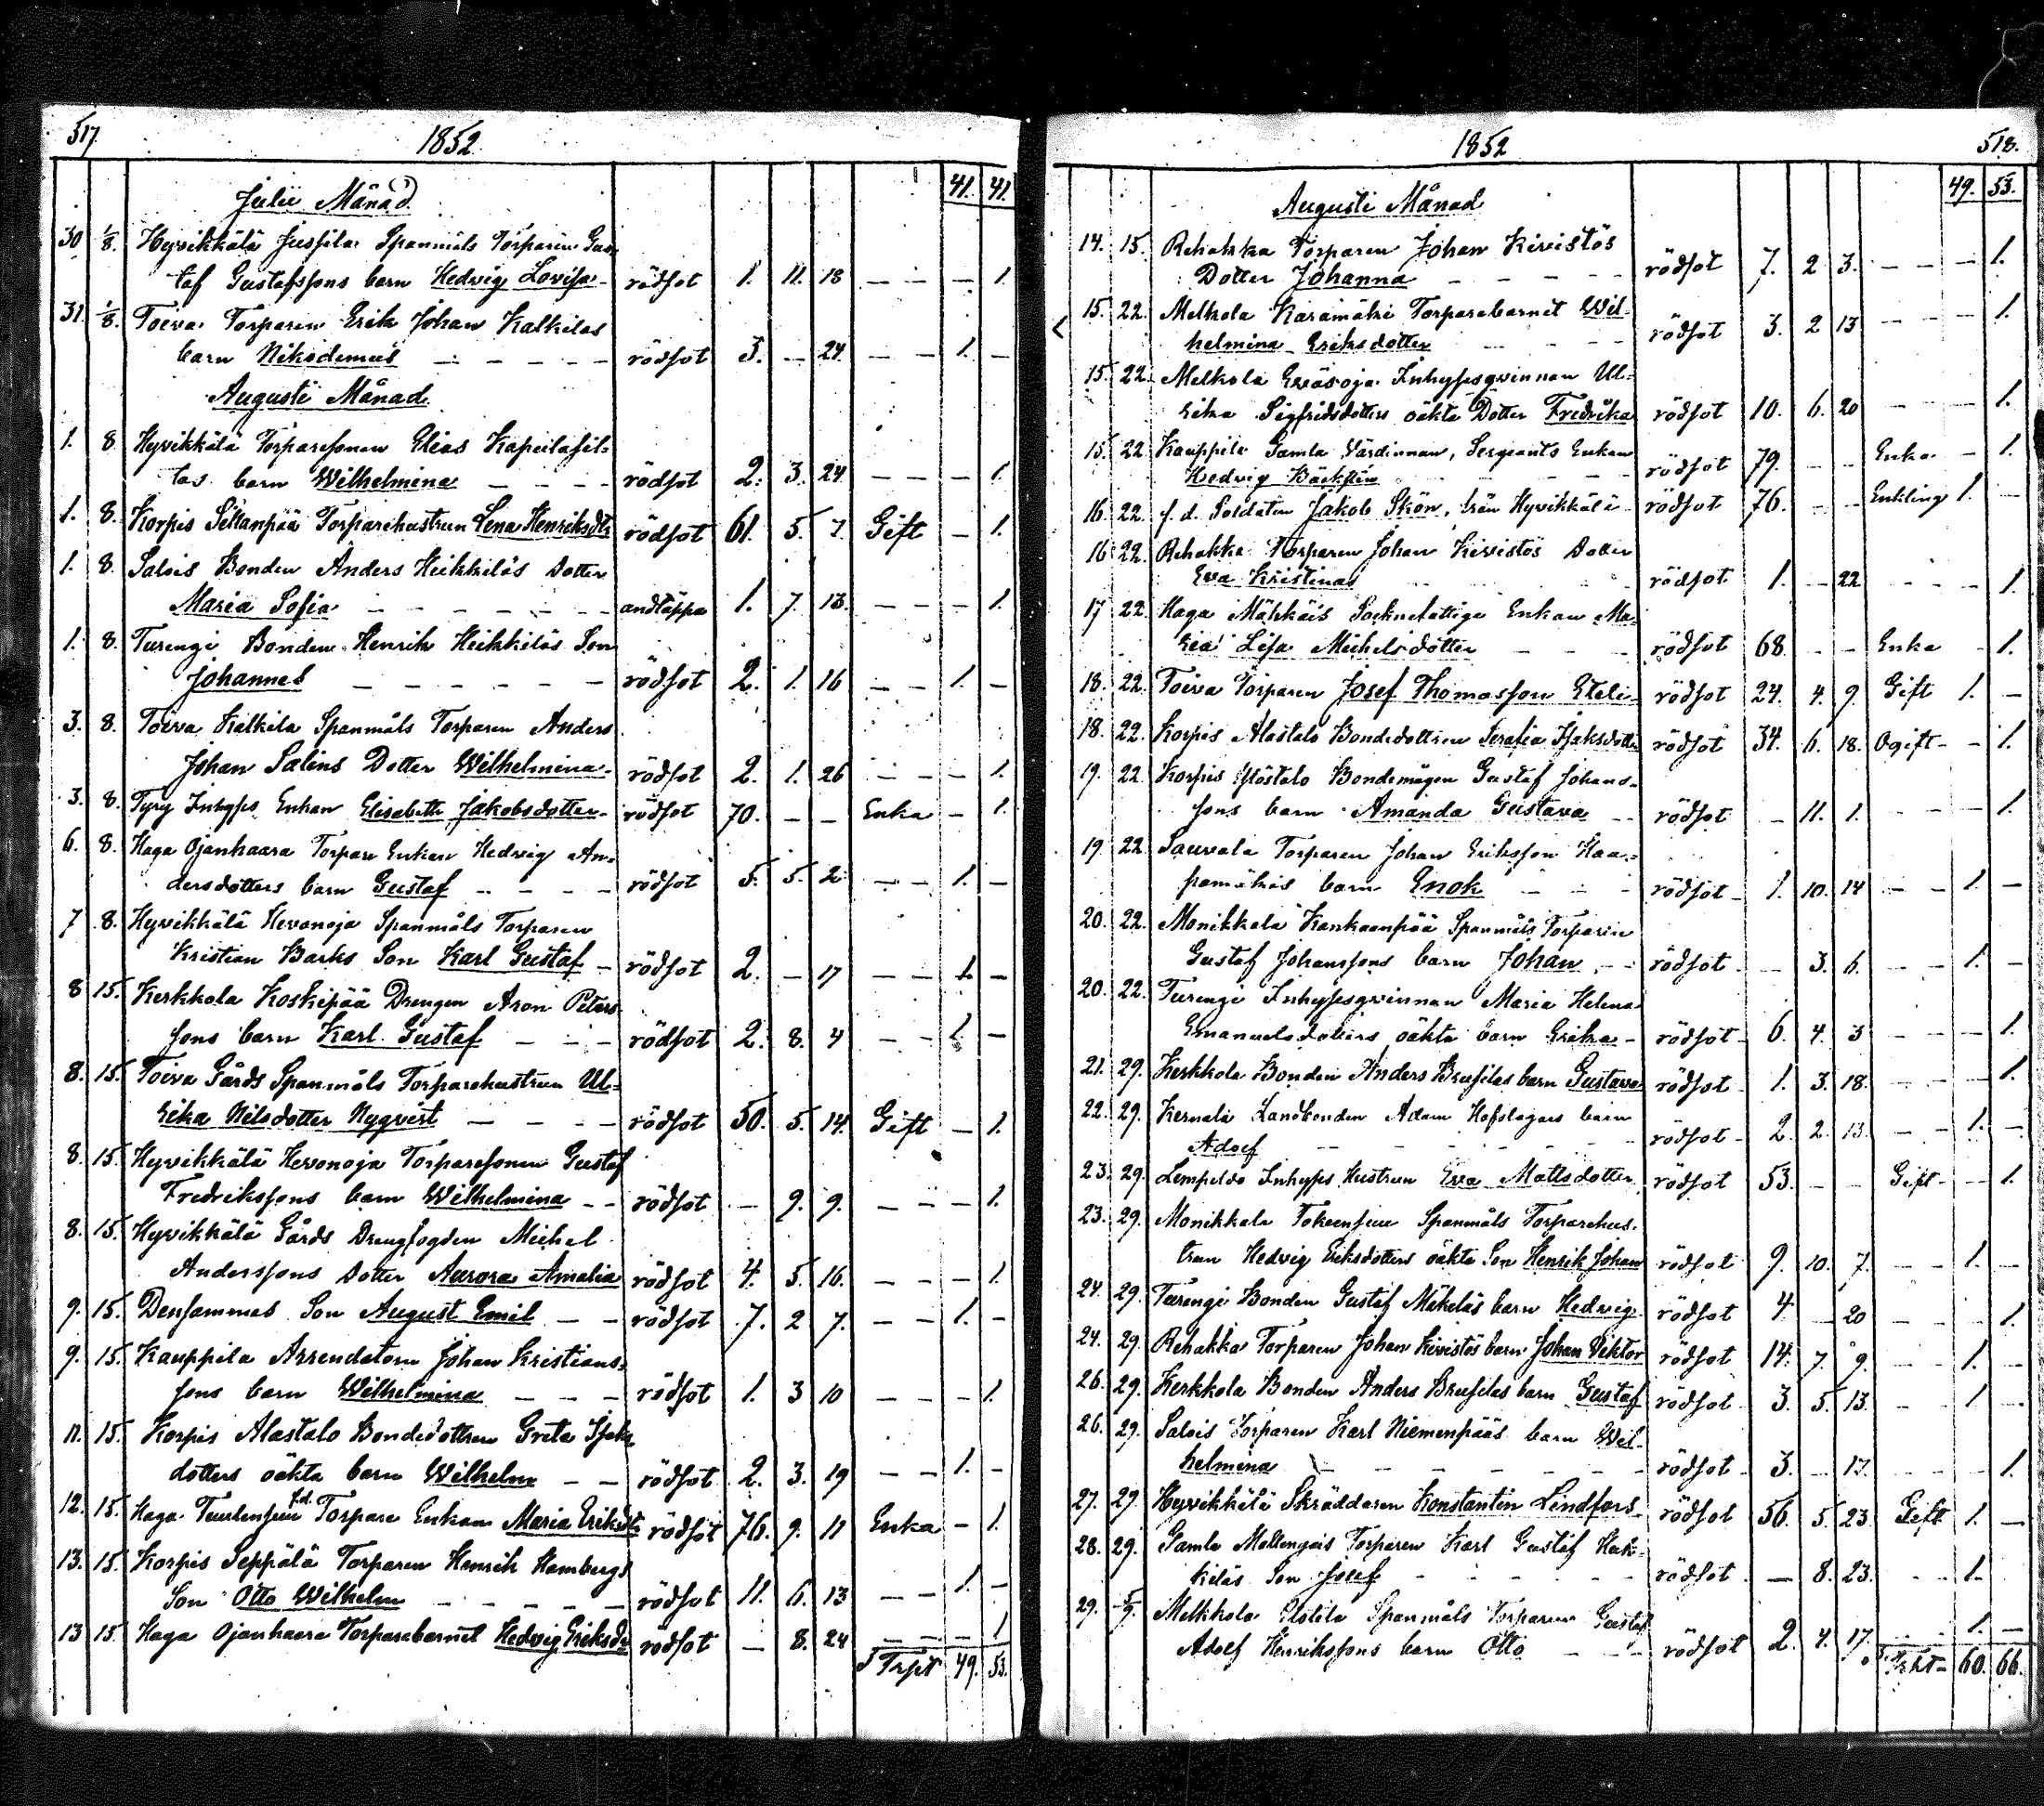 517
1852
Julii Månad
41. 41.
30 1/8. Hyvikkälä Spanmåls Torparen Gus-
taf Gustafssons barn Hedvig Lovisa - rödsot 1. 11. 18 — — — 1.
31. 1/8. Toiva Torparen Erik Johan Kalkilas
barn Nikodemus - - - - rödsot 3. — 24. — — 1. —
Augusti Månad
1. 8 Hyvikkälä Torparesonen Elias
barn Wilhelmina - - - - rödsot 2. 3. 24 — — — 1.
1. 8. Korpis Sillanpää Torparehustrun Lena Henriksdtr rödsot 61. 5. 7. Gift — 1.
1. 8. Salois Bonden Anders Heikkiläs Dotter
Maria Sofia - - - - - andtäppa 1. 7. 13. — — — 1.
1. 8. Turengi Bonden Henrik Heikkiläs Son
Johannes - - - - - - rödsot 2. 1. 16 — — 1. —
3. 8. Toiva Kalkila Spanmåls Torparen Anders
Johan Salins Dotter Wilhelmina - rödsot 2. 1. 26 — — — 1.
3. 8. Tyry Inhyses Enkan Elisabeth Jakobsdotter - rödsot 70. — — Enka — 1.
6. 8. Haga Ojanhaara Torpare Enkan Hedvig An-
dersdotters barn Gustaf - - - - rödsot 5. 5. 2 — — 1. —
7 8. Hyvikkälä Hevonoja Spanmåls Torparen
Kristian Barks Son Karl Gustaf - rödsot 2. — 17 — — 1. —
8 15. Kerkkola Koskipää Drengen Aron Peters-
sons barn Karl Gustaf - - - rödsot 2. 8. 4 — — 1. —
8. 15. Toiva Gårds Spanmåls Torparehustrun Ul-
rika Nilsdotter Nyqvist - - - - rödsot 50. 5. 14. Gift — 1.
8. 15. Hyvikkälä Hevonoja Torparesonen Gustaf
Fredrikssons barn Wilhelmina - - rödsot — 9. 9. — — — 1.
8. 15. Hyvikkälä Gårds Drengfogden Michel
Anderssons Dotter Aurora Amalia rödsot 4. 5. 16. — — — 1.
9. 15. Densammes Son August Emil - - rödsot 7. 2 7. — — 1. —
9. 15. Kauppila Arrendatorn Johan Kristians-
sons barn Wilhelmina - - - rödsot 1. 3 10 — — — 1.
11. 15. Korpis Alastalo Bondedottren Greta Isaks
dotters oäkta barn Wilhelm - - rödsot 2. 3. 19 — — 1. —
12. 15. Haga f.d. Torpare Enkan Maria Eriksdtr rödsot 76. 9. 11 Enka — 1.
13. 15. Korpis Seppälä Torparen Henrik Hambergs
Son Otto Wilhelm - - - - rödsot 11. 6. 13 — — 1. —
13 15. Haga Ojanhaara Torparebarnet Hedvig Eriksdr rödsot — 8. 24 — — — 1
Trpt 49. 53.
1852
518.
Augusti Månad
49. 53.
14. 15. Rehakka Torparen Johan Kivistös
Dotter Johanna - - - - rödsot 7. 2 3. — — — 1.
15. 22. Melkola Karamäki Torparebarnet Wil-
helmina Eriksdotter - - - - rödsot 3. 2 13 — — — 1.
15. 22. Melkola Inhysesqvinnan Ul-
rika Sigfridsdotters oäkta Dotter Fredrika rödsot 10. 6. 20 — — 1.
15. 22 Kauppila Gamla Värdinnan, Sergeants Enkan
Hedvig Bäckstén rödsot 79. — — Enka — 1.
16. 22. f. d. Soldaten Jakob Skön, från Hyvikkälä - rödsot 76. — — Enkling 1. —
16 22. Rehakka Torparen Johan Kivistös Dotter
Eva Kristina rödsot 1. — 22 — — — 1.
17 22. Haga Mähkäis Socknefattige Enkan Ma-
ria Lisa Michelsdotter - - - rödsot 68. — — Enka — 1.
18. 22. Toiva Torparen Josef Thomasson Eteli- rödsot 24. 4. 9. Gift 1. —
18. 22. Korpis Alastalo Bondedottren Serafia Isaksdotter rödsot 34. 6. 18. Ogift — 1.
19. 22 Korpis Yöstalo Bondemågen Gustaf Johans-
sons barn Amanda Gustava - - rödsot — 11. 1. — — — 1.
19 22 Sauvala Torparen Johan Eriksson Haa-
pamäkis barn Enok - - - rödsot - 1. 10. 14 — — 1. —
20. 22. Monikkala Kankaanpää Spanmåls Torparen
Gustaf Johanssons barn Johan - - rödsot - — 3. 6. — — 1. —
20. 22. Turengi Inhysesqvinnan Maria Helena
Emanuelsdotters oäkta barn Erika - rödsot - 6. 4. 3 — — — 1.
21. 29. Kerkkola Bonden Anders Brusilas barn Gustava rödsot - 1. 3. 18. — — — 1.
22. 29. Kernala Landbonden Adam Hofslagars barn
Adolf - - - - - rödsot - 2. 2. 13. — — 1. —
23. 29. Inhyses Hustrun Eva Mattsdotter rödsot 53. — — Gift — — 1.
23. 29. Monikkala Spanmåls Torparehus-
trun Hedvig Eriksdotters oäkta Son Henrik Johan rödsot 9. 10. 7. — — 1. —
24. 29. Turengi Bonden Gustaf Mikeläs barn Hedvig rödsot 4. — 20 — — — 1.
24. 29. Rehakka Torparen Johan Kivistös barn Johan Viktor rödsot 14. 7. 9. — — 1. —
26. 29. Kerkkola Bonden Anders Brusilas barn Gustaf rödsot 3. 5. 13. — — 1 —
26. 29. Salois Torparen Karl Niemenpääs barn Wil-
helmina - - - - - rödsot - 3. — 17. — — — 1.
27. 29. Hyvikkälä Skräddaren Konstantin Lindfors - rödsot 56. 5. 23. Gift 1. —
28. 29. Gamla Torparen Karl Gustaf Heik-
kiläs Son Josef - - - - rödsot - — 8. 23. — — 1. —
29. 5/9. Melkkola Spanmåls Torparen Gustaf
Adolf Henrikssons barn Otto - - - rödsot 2. 4. 17. — — 1. —
60. 66.